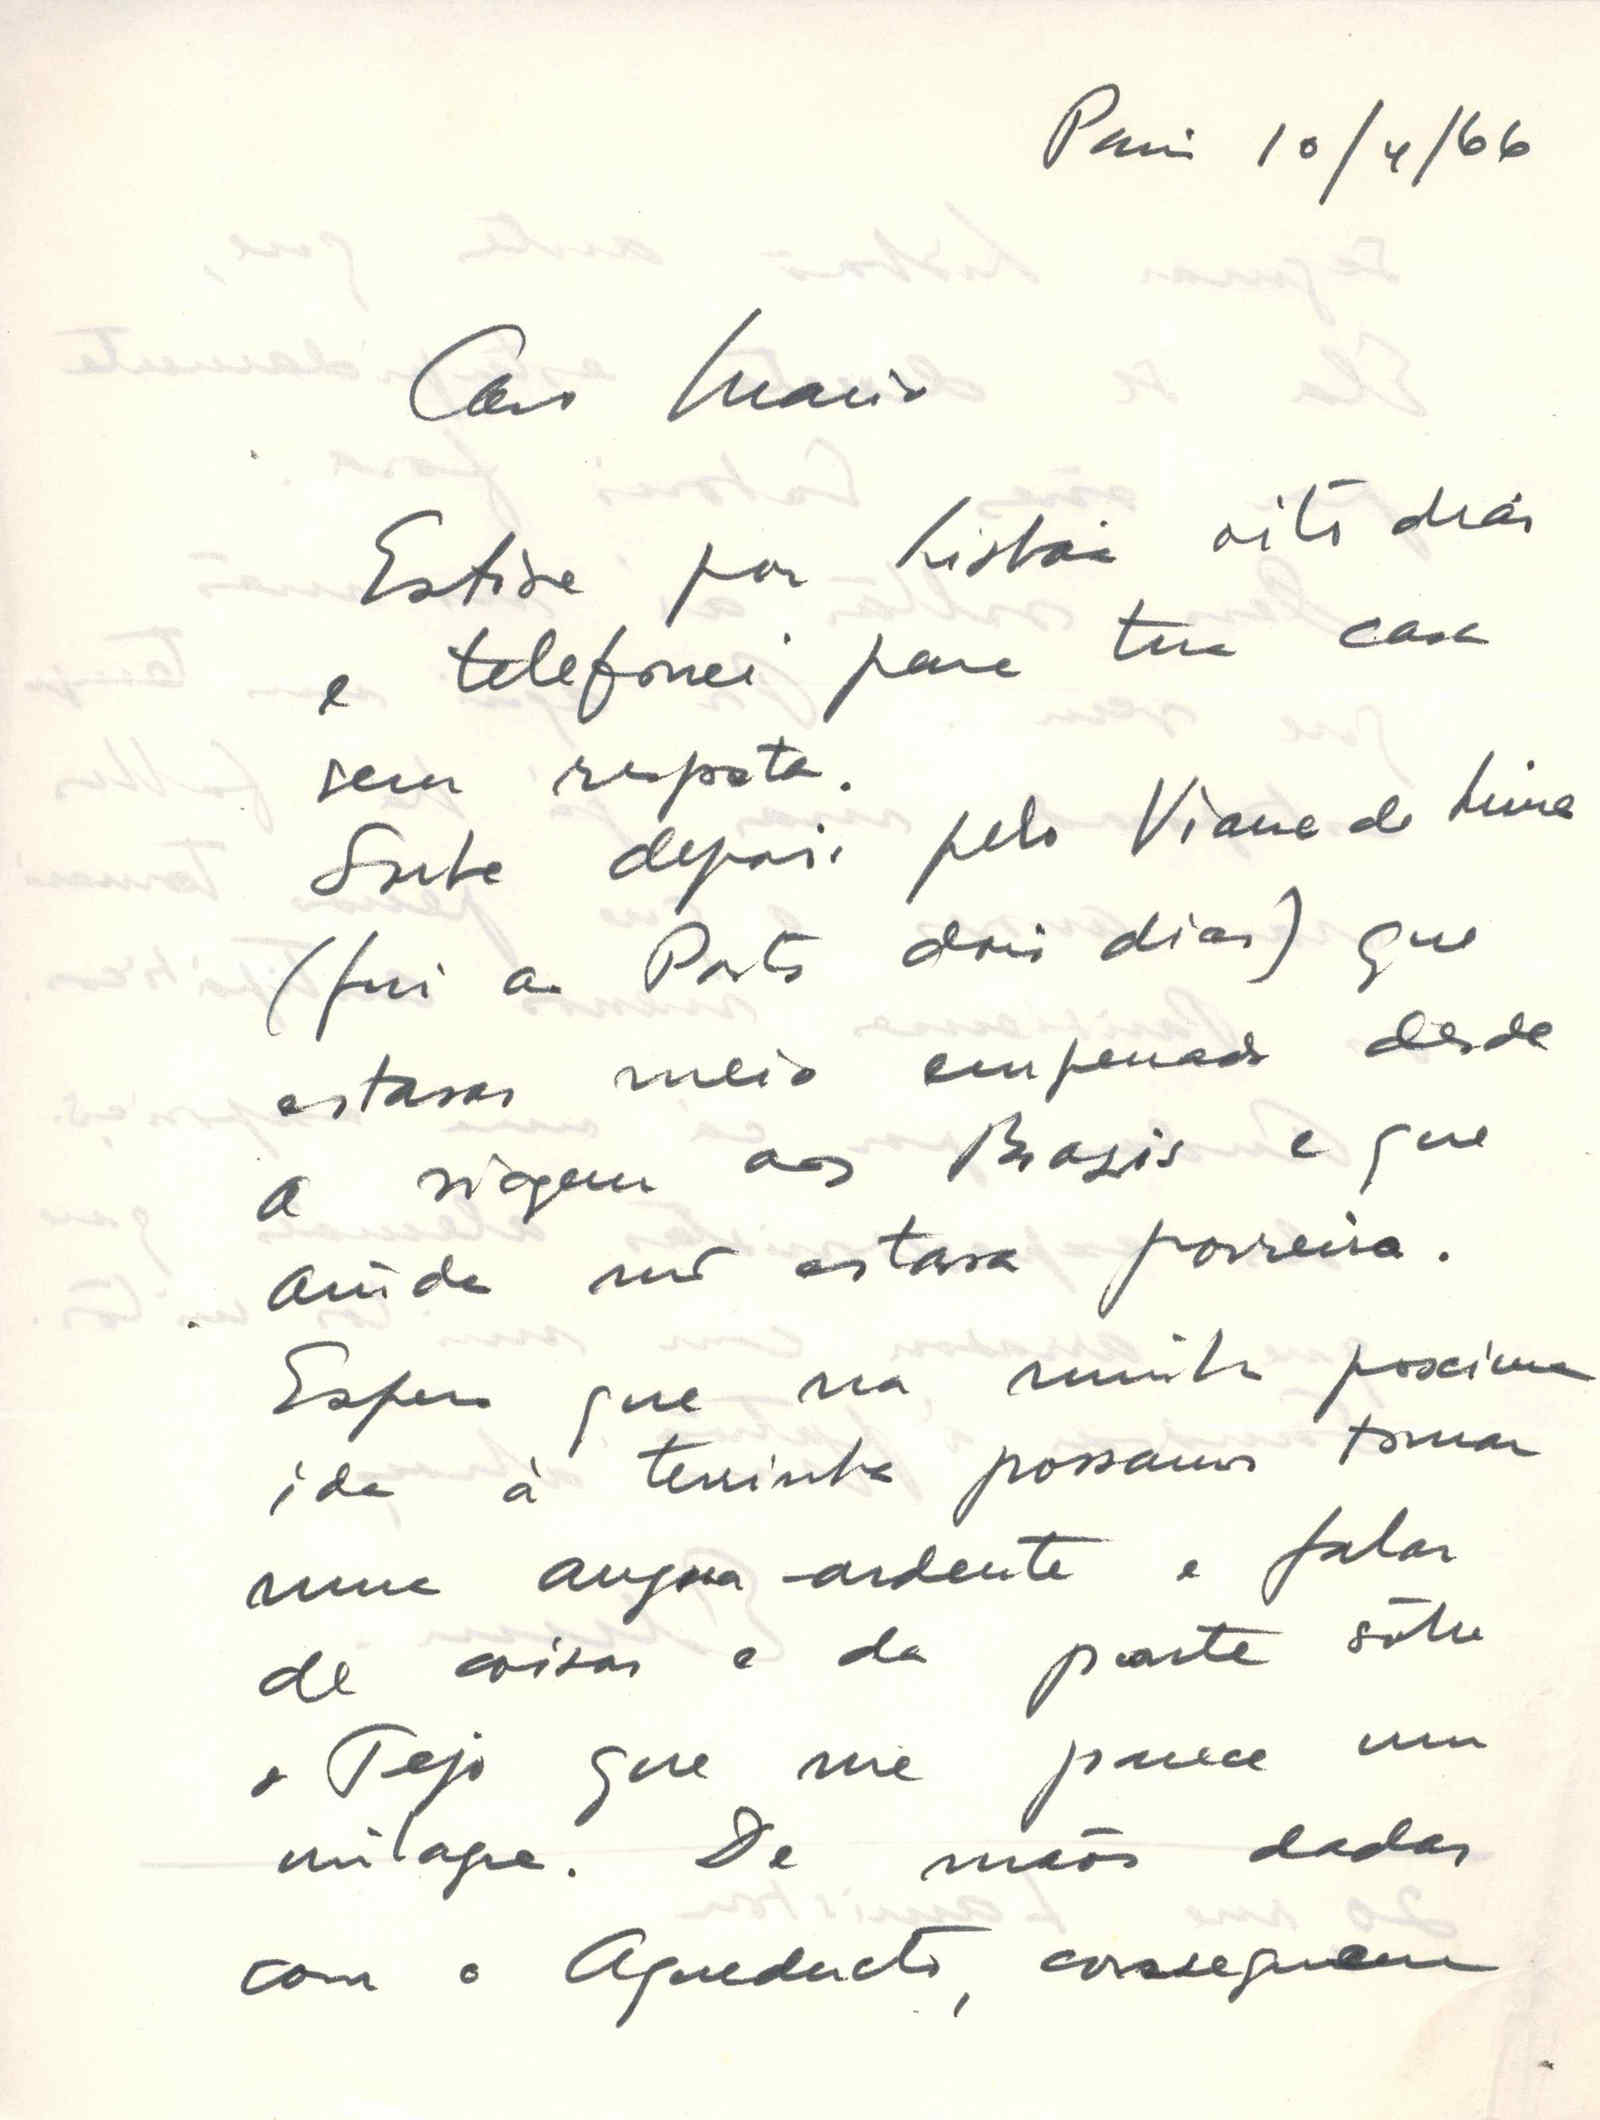 Paris 10/4/66
Caro Mario
Estive por Lisboa oito dias
e telefonei para tua casa
sem resposta.
Soube depois pelo Viana de Lima
(fui ao Porto dois dias) que
estavas meio empenado desde
a viagem aos Brazis e que
ainda não estava porreiro.
Espero que na minha proxima
ida à terrinha possamos tomar
uma augua-ardente e falar
de coisas e da ponte sôbre
o Tejo que me parece um
milagre. De mãos dadas
com o Aqueducto, conseguem